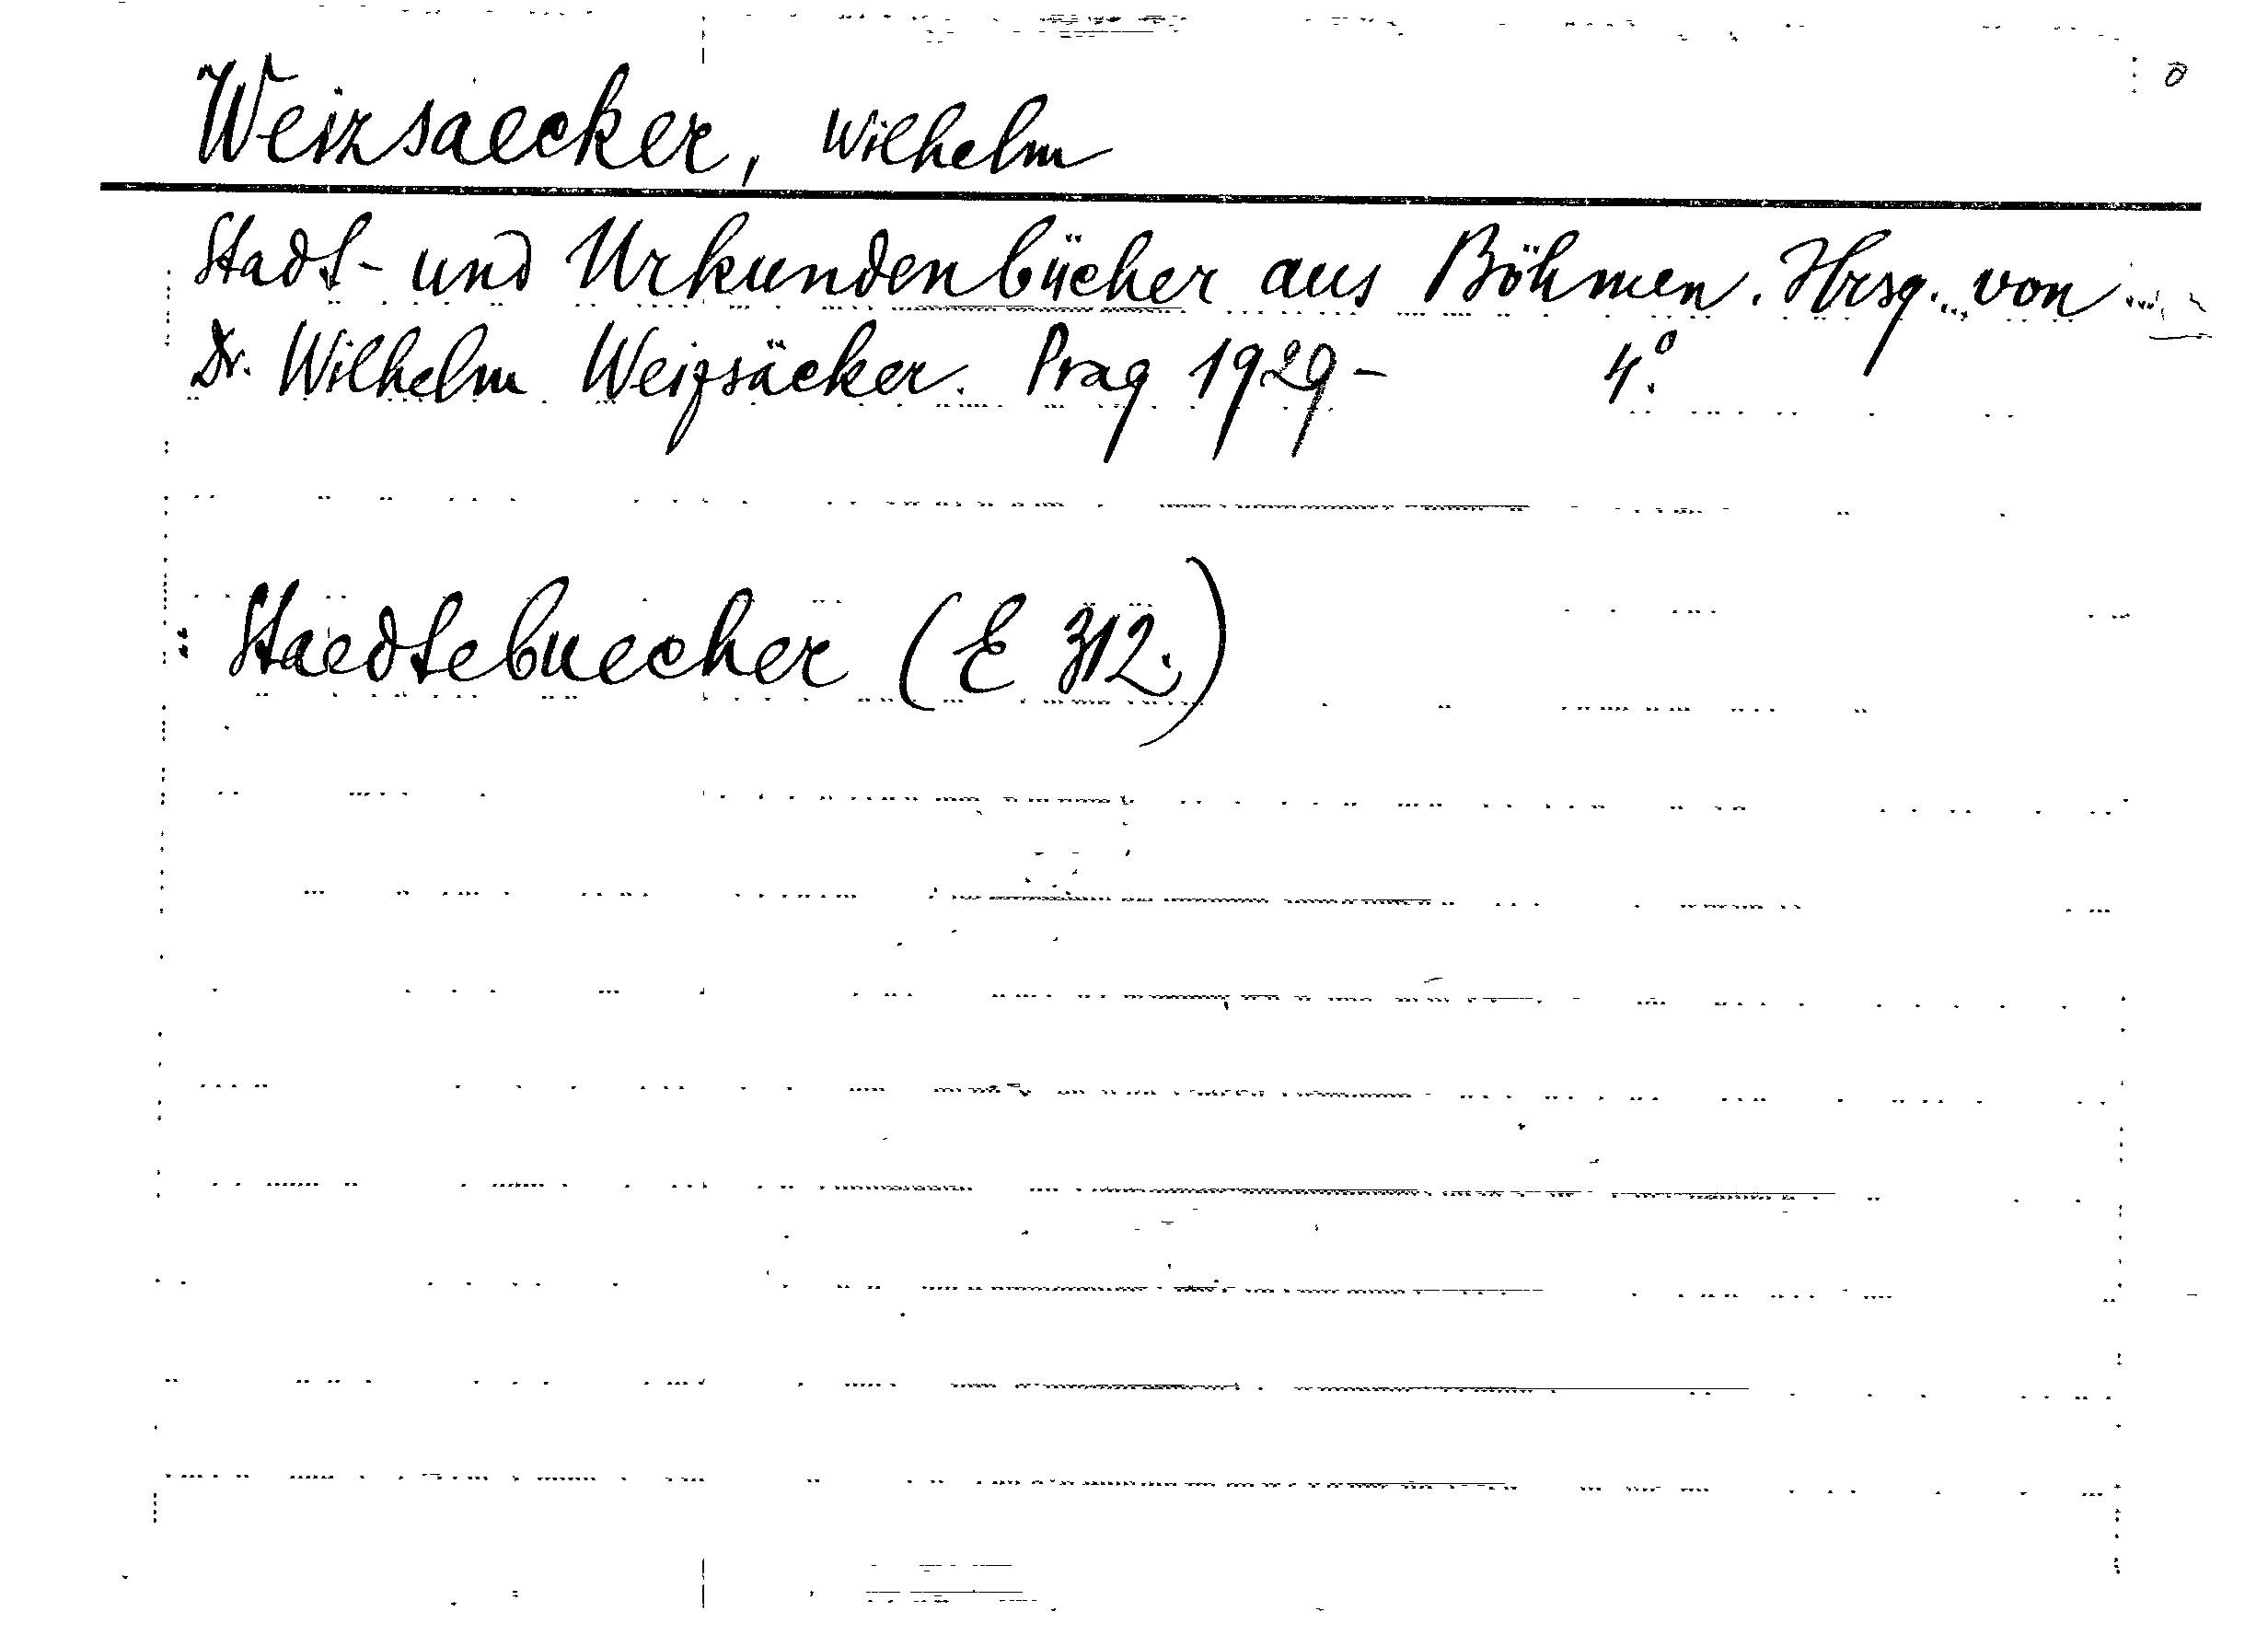 Weizsaecker, Wilhelm
Stadt- und Urkundenbücher aus Böhmen. Hrsg. von
Dr. Wilhelm Weizsäcker. Prag 1929- 4.°
: Staedtebuecher (E 312.)